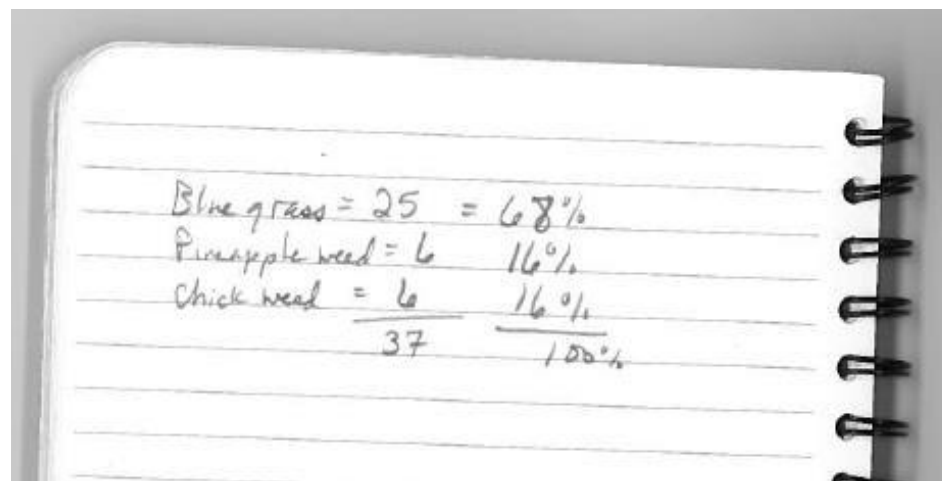 Blue grass = 25 = 68%
Pineapple weed = 6 16%
Chick weed = 6 16%
37 100%